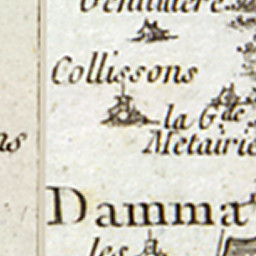 Collissons
la G.de
Metairie
Damma
les